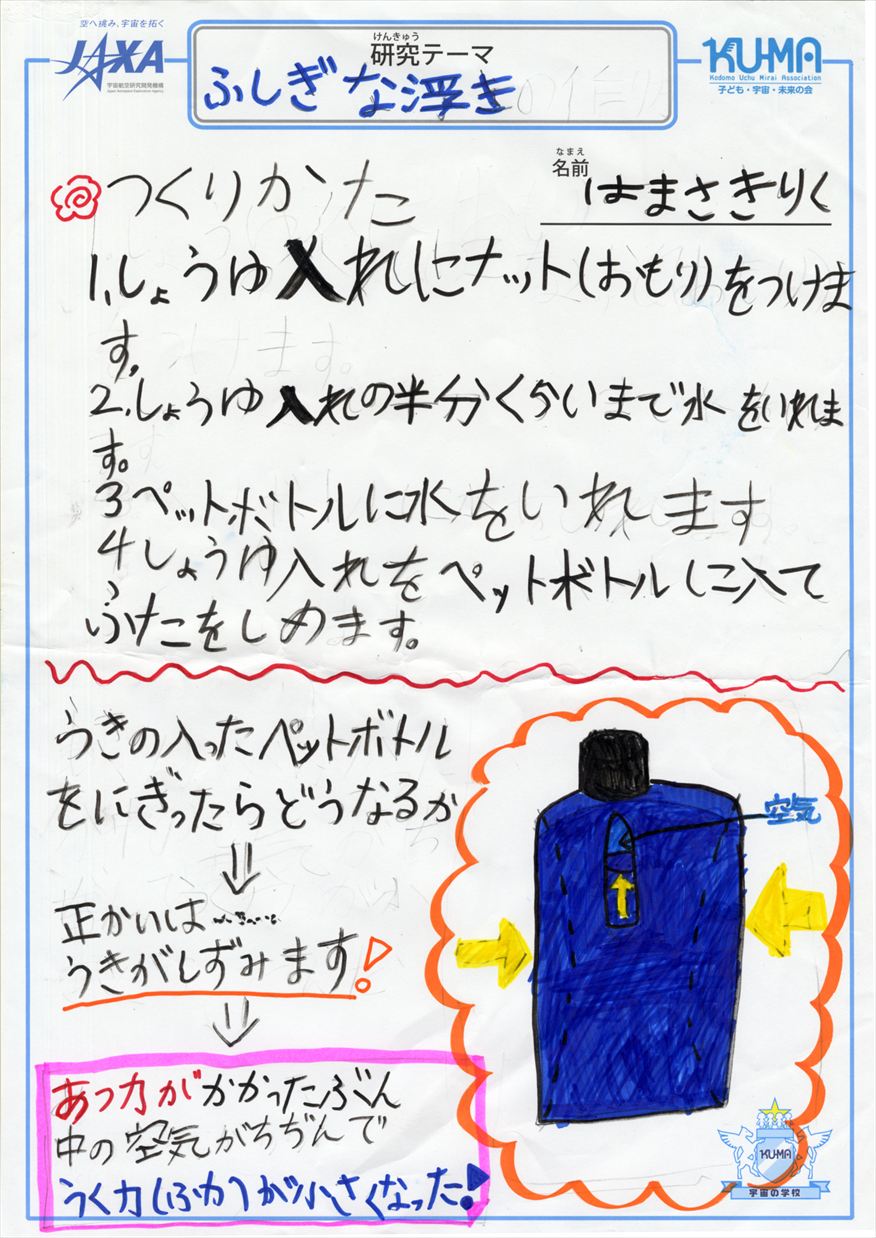 空へ挑み、宇宙を拓く
JAXA
宇宙航空研究開発機構
Japan Aerospace Exploration Agency
けんきゅう
研究テーマ
ふしぎな浮き
KU-MA
Kodomo Uchu Mirai Association
子ども・宇宙・未来の会
なまえ
名前
はまさきりく
つくりかた
1.しょうゆ入れにナット(おもり)をつけま
す。
2.しょうゆ入れの半分くらいまで水をいれま
す。
3ペットボトルに水をいれます
4しょうゆ入れをペットボトルに入て
ふたをしめます。
うきの入ったペットボトル
をにぎったらどうなるか
⇓
正かいは……
うきがしずみます!
⇓
あつ力がかかったぶん
中の空気がちぢんで
うく力(ふ力)が小さくなった!
空気
KU-MA
宇宙の学校